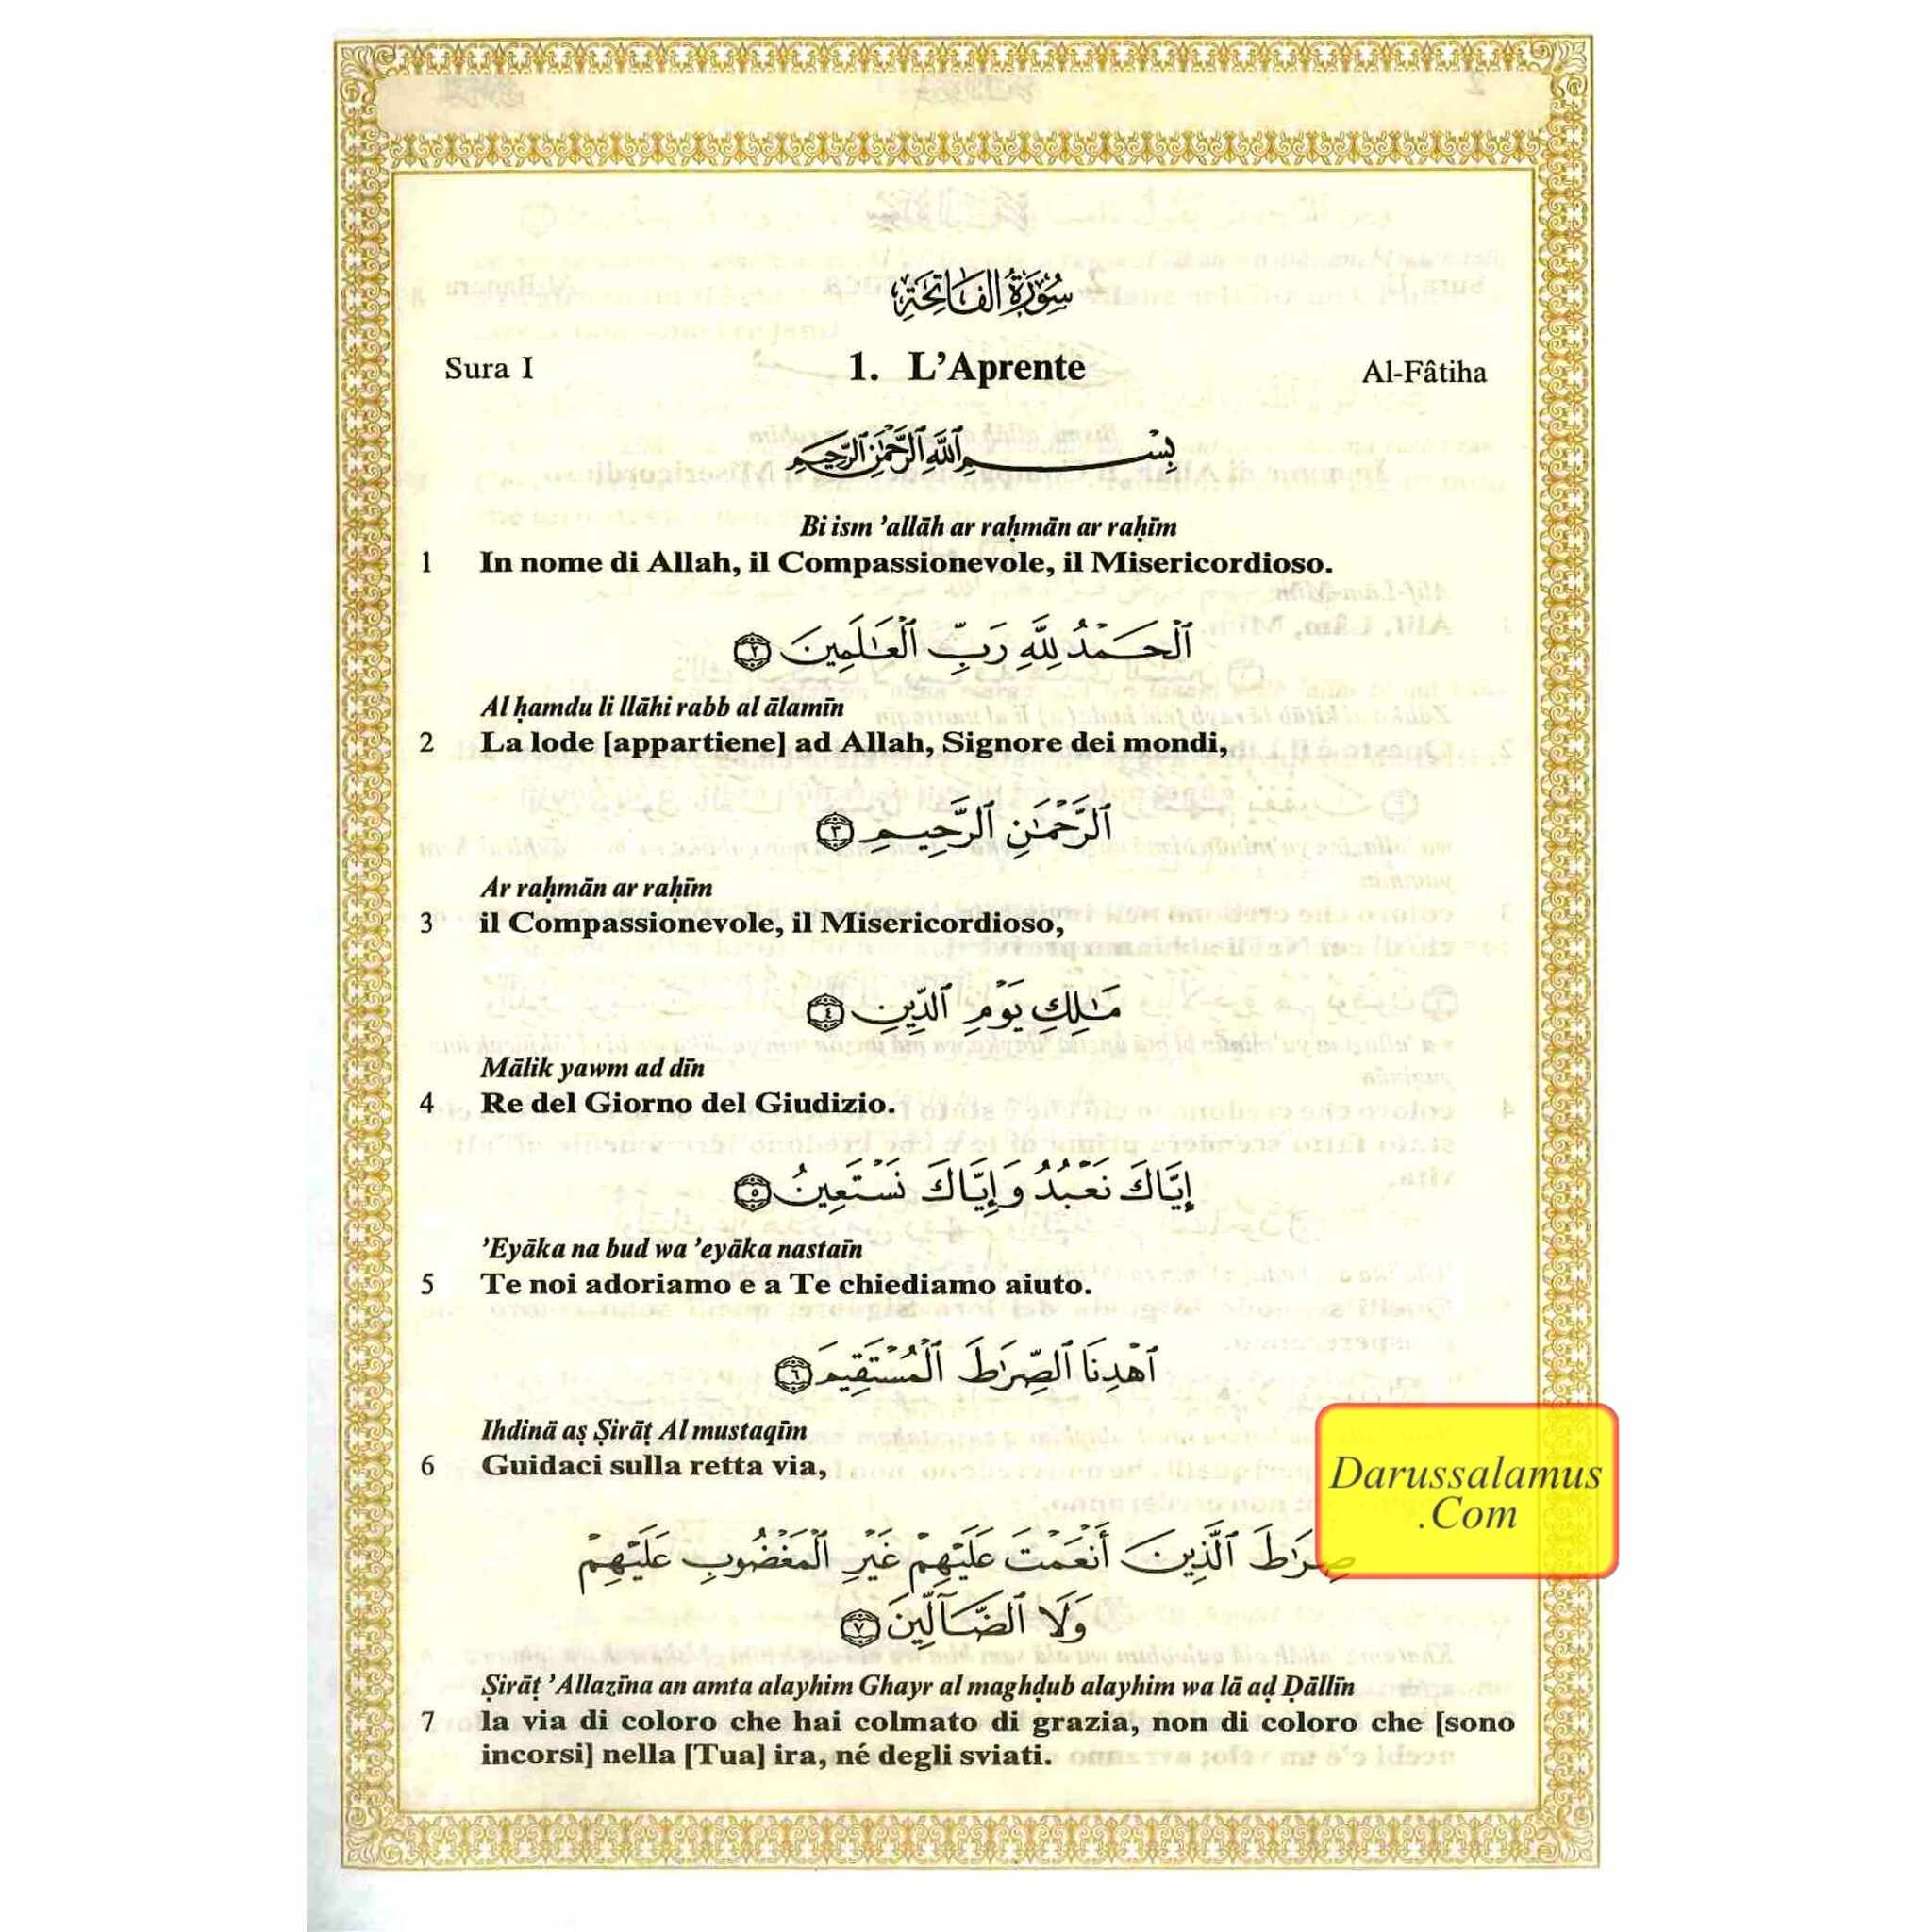 سُورَةُ الفَاتِحَةِ
Sura I 1. L’Aprente Al-Fâtiha
بِسْمِ ٱللَّهِ ٱلرَّحْمَٰنِ ٱلرَّحِيمِ
Bi ism ’allāh ar raḥmān ar raḥīm
1 In nome di Allah, il Compassionevole, il Misericordioso.
ٱلْحَمْدُ لِلَّهِ رَبِّ ٱلْعَٰلَمِينَ ٢
Al ḥamdu li llāhi rabb al ālamīn
2 La lode [appartiene] ad Allah, Signore dei mondi,
ٱلرَّحْمَٰنِ ٱلرَّحِيمِ ٣
Ar raḥmān ar raḥīm
3 il Compassionevole, il Misericordioso,
مَٰلِكِ يَوْمِ ٱلدِّينِ ٤
Mālik yawm ad dīn
4 Re del Giorno del Giudizio.
إِيَّاكَ نَعْبُدُ وَإِيَّاكَ نَسْتَعِينُ ٥
’Eyāka na bud wa ’eyāka nastaīn
5 Te noi adoriamo e a Te chiediamo aiuto.
ٱهْدِنَا ٱلصِّرَٰطَ ٱلْمُسْتَقِيمَ ٦
Ihdinā aṣ Ṣirāṭ Al mustaqīm
6 Guidaci sulla retta via,
Darussalamus
.Com
صِرَٰطَ ٱلَّذِينَ أَنْعَمْتَ عَلَيْهِمْ غَيْرِ ٱلْمَغْضُوبِ عَلَيْهِمْ
وَلَا ٱلضَّآلِّينَ ٧
Ṣirāṭ ’Allazīna an amta alayhim Ghayr al maghḍub alayhim wa lā aḍ Ḍāllīn
7 la via di coloro che hai colmato di grazia, non di coloro che [sono
incorsi] nella [Tua] ira, né degli sviati.